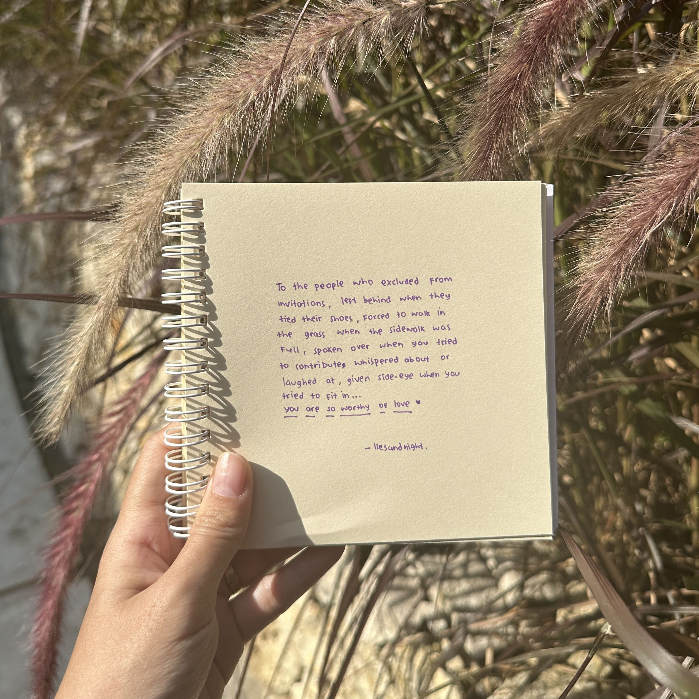 To the people who excluded from
invitations, left behind when they
tied their shoes, forced to walk in
the grass when the sidewalk was
full, spoken over when you tried
to contribute, whispered about or
laughed at, given side-eye when you
tried to fit in...
you are so worthy of love ♥
- liesandnight.